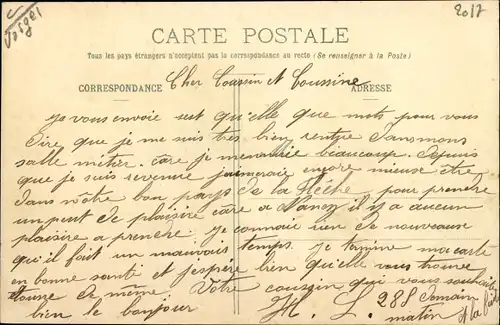 Vosges
2017
CARTE POSTALE
Tous les pays étrangers n'acceptent pas la correspondance au recto (Se renseigner à la Poste)
CORRESPONDANCE
ADRESSE
Cher Coussin et Coussine
Je vous envoie set qu'elle que mots pour vous
dire que je me suis très bien rentre dans mons
salle métier. Care je menannuie beaucoup. Depuis
que je suis revenue jaimeraie encore mieuse être
dans nôtre bon pays de la Flèche pour prendre
un peut de plaisire câre a Nancy il y a aucun
plaisire a prendre. Je connaie rien de nouveause
qu'il fait un mauvais temps. Je termine ma carte
en bonne santé et j'espère bien qu'elle vous trouve
touse de même. Votre coussin qui vous souhaite
bien le bonjour H. L. 288 demain
matin à la